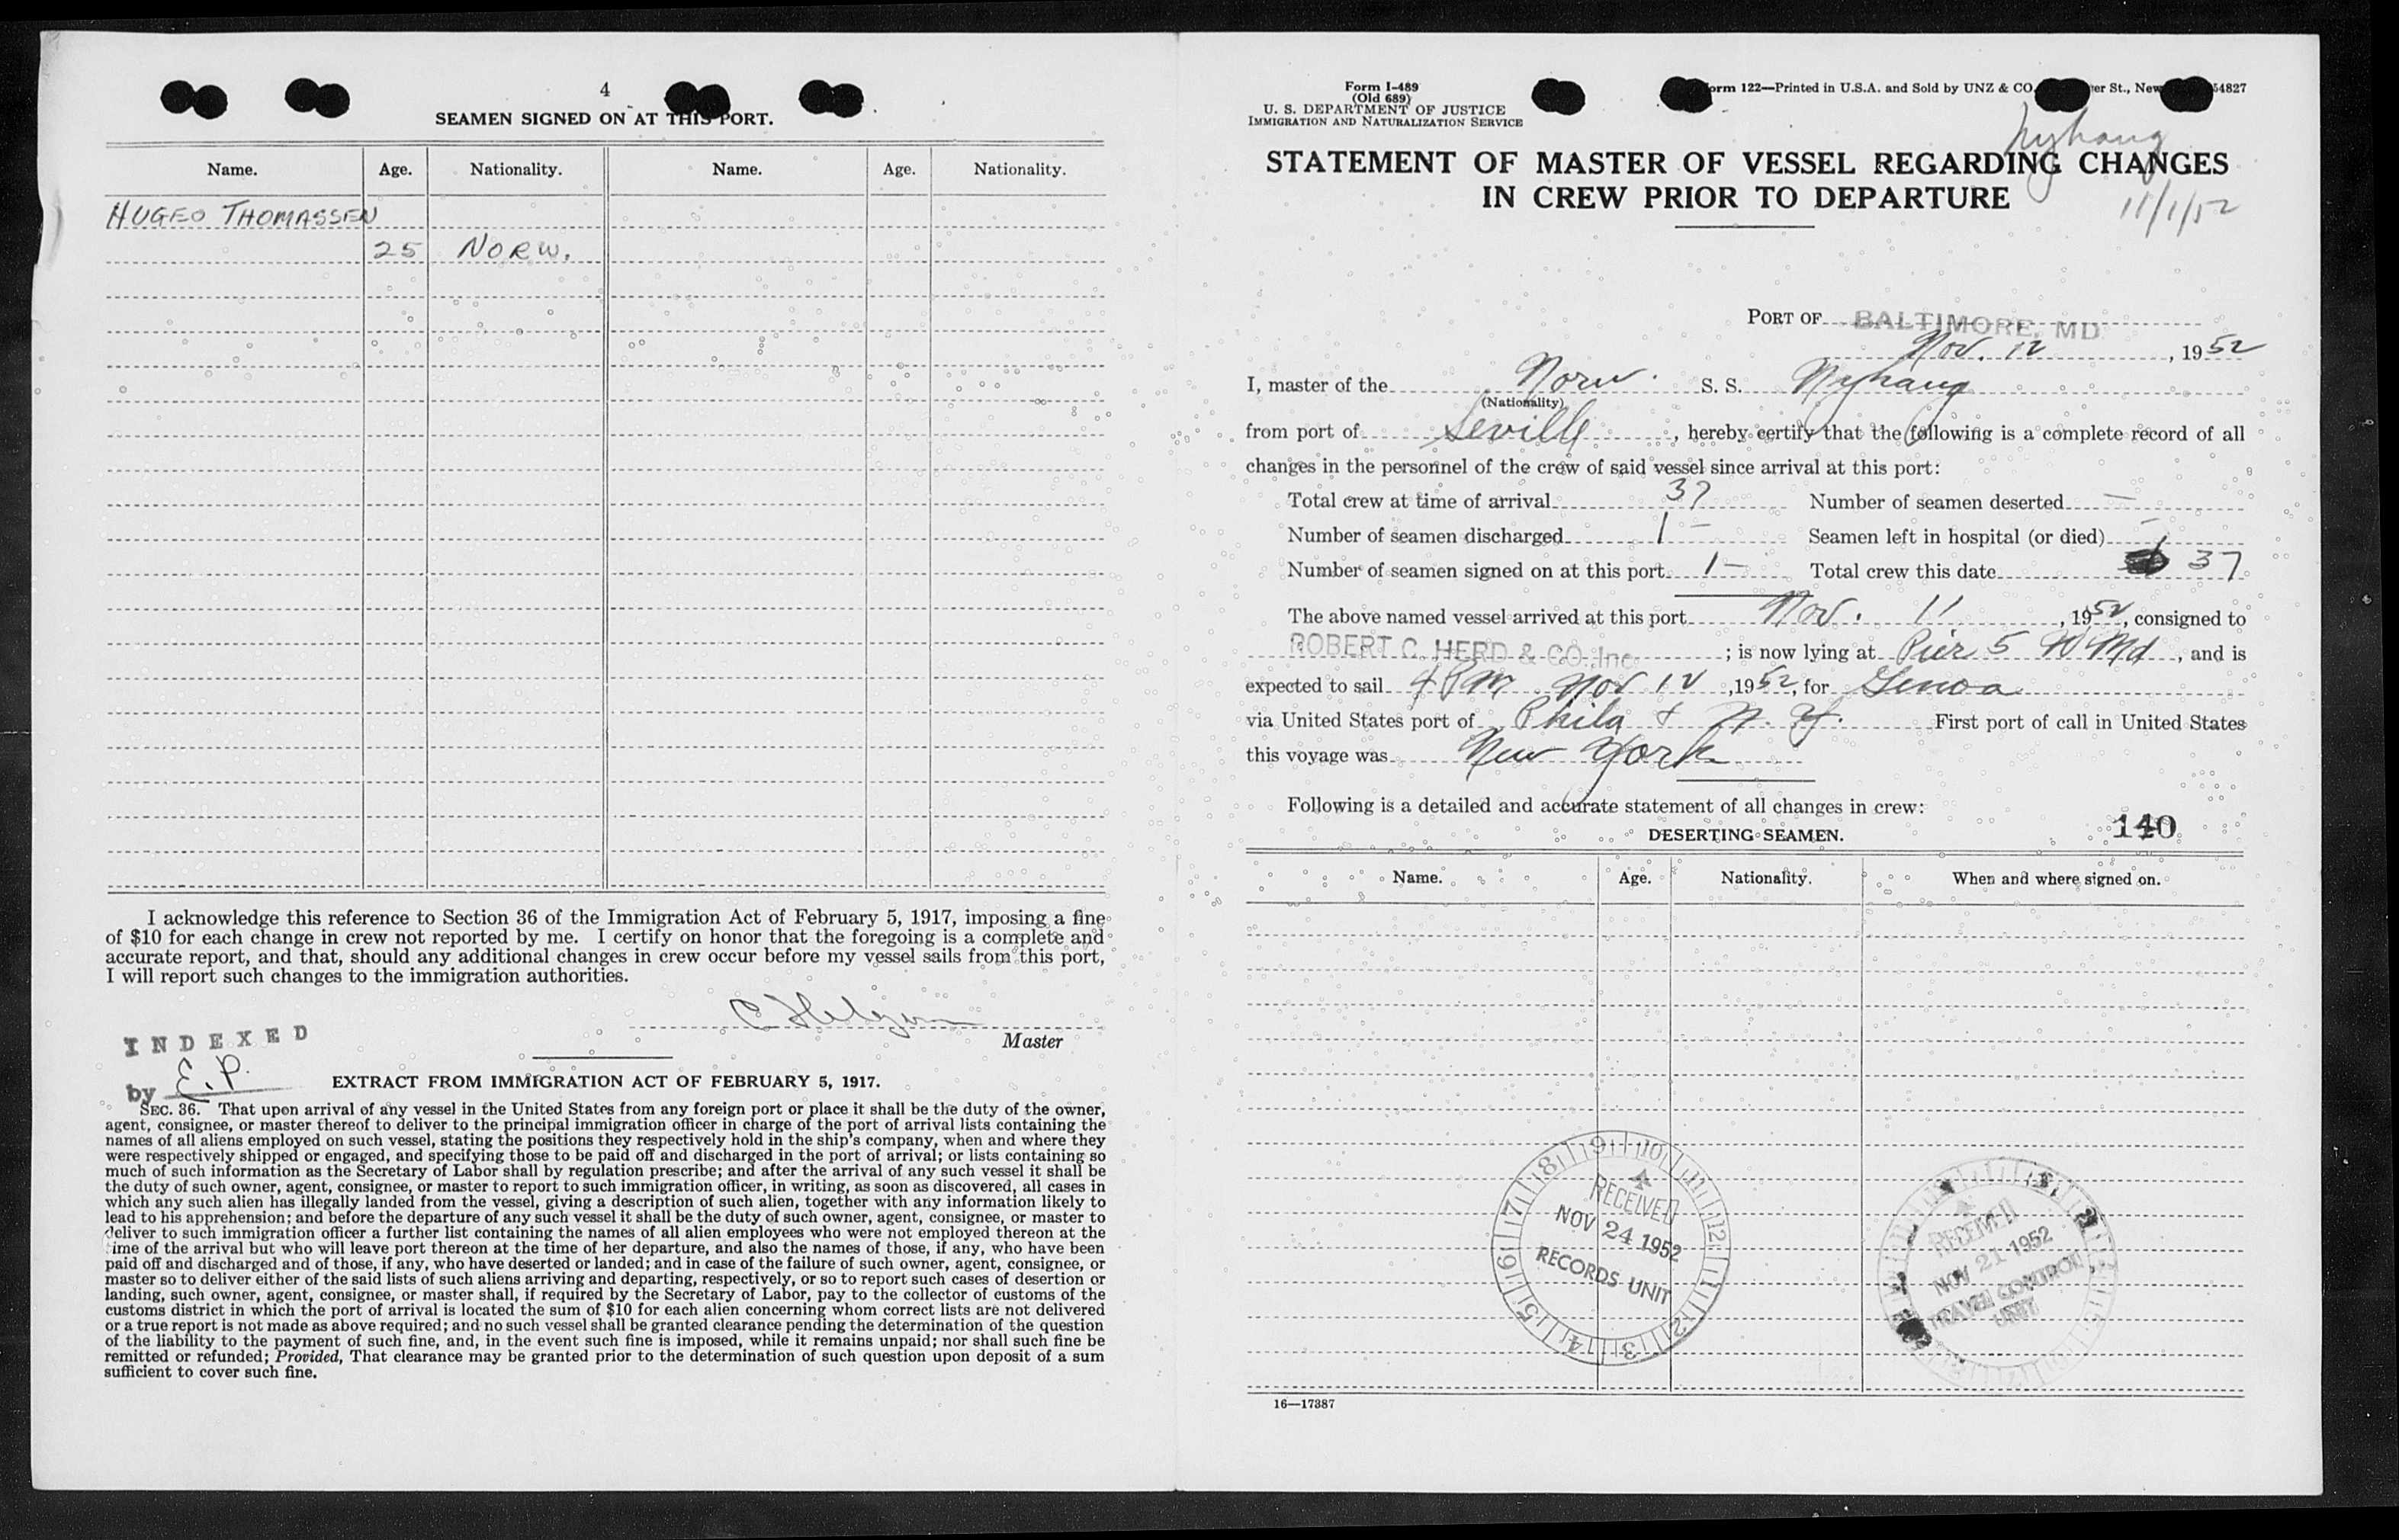 4
SEAMEN SIGNED ON AT THIS PORT.
Name. Age. Nationality. Name. Age. Nationality.
HUGEO THOMASSEN
25 NORW.
I acknowledge this reference to Section 36 of the Immigration Act of February 5, 1917, imposing a fine
of $10 for each change in crew not reported by me. I certify on honor that the foregoing is a complete and
accurate report, and that, should any additional changes in crew occur before my vessel sails from this port,
I will report such changes to the immigration authorities.
Master
INDEXED
by E.P.
EXTRACT FROM IMMIGRATION ACT OF FEBRUARY 5, 1917.
SEC. 36. That upon arrival of any vessel in the United States from any foreign port or place it shall be the duty of the owner,
agent, consignee, or master thereof to deliver to the principal immigration officer in charge of the port of arrival lists containing the
names of all aliens employed on such vessel, stating the positions they respectively hold in the ship's company, when and where they
were respectively shipped or engaged, and specifying those to be paid off and discharged in the port of arrival; or lists containing so
much of such information as the Secretary of Labor shall by regulation prescribe; and after the arrival of any such vessel it shall be
the duty of such owner, agent, consignee, or master to report to such immigration officer, in writing, as soon as discovered, all cases in
which any such alien has illegally landed from the vessel, giving a description of such alien, together with any information likely to
lead to his apprehension; and before the departure of any such vessel it shall be the duty of such owner, agent, consignee, or master to
deliver to such immigration officer a further list containing the names of all alien employees who were not employed thereon at the
time of the arrival but who will leave port thereon at the time of her departure, and also the names of those, if any, who have been
paid off and discharged and of those, if any, who have deserted or landed; and in case of the failure of such owner, agent, consignee, or
master so to deliver either of the said lists of such aliens arriving and departing, respectively, or so to report such cases of desertion or
landing, such owner, agent, consignee, or master shall, if required by the Secretary of Labor, pay to the collector of customs of the
customs district in which the port of arrival is located the sum of $10 for each alien concerning whom correct lists are not delivered
or a true report is not made as above required; and no such vessel shall be granted clearance pending the determination of the question
of the liability to the payment of such fine, and, in the event such fine is imposed, while it remains unpaid; nor shall such fine be
remitted or refunded; Provided, That clearance may be granted prior to the determination of such question upon deposit of a sum
sufficient to cover such fine.
Form I-489
(Old 689)
U. S. DEPARTMENT OF JUSTICE
IMMIGRATION AND NATURALIZATION SERVICE
orm 122—Printed in U.S.A. and Sold by UNZ & CO. er St., New 54827
Nyhaug
11/1/52
STATEMENT OF MASTER OF VESSEL REGARDING CHANGES
IN CREW PRIOR TO DEPARTURE
PORT OF BALTIMORE, MD
Nov. 12, 1952
I, master of the Norw. S. S. Nyhaug
(Nationality)
from port of Seville, hereby certify that the following is a complete record of all
changes in the personnel of the crew of said vessel since arrival at this port:
Total crew at time of arrival 37 Number of seamen deserted —
Number of seamen discharged 1 — Seamen left in hospital (or died) —
Number of seamen signed on at this port 1 — Total crew this date 37
The above named vessel arrived at this port Nov. 11, 1952, consigned to
ROBERT C. HERD & CO., Inc. ; is now lying at Pier 5 W Md, and is
expected to sail 4 PM Nov 12, 1952, for Genoa
via United States port of Phila & N. Y. First port of call in United States
this voyage was New York
Following is a detailed and accurate statement of all changes in crew:
140
DESERTING SEAMEN.
Name. Age. Nationality. When and where signed on.
RECEIVED
NOV 24 1952
RECORDS UNIT
RECEIVED
NOV 21 1952
TRAVEL CONTROL
UNIT
16—17387